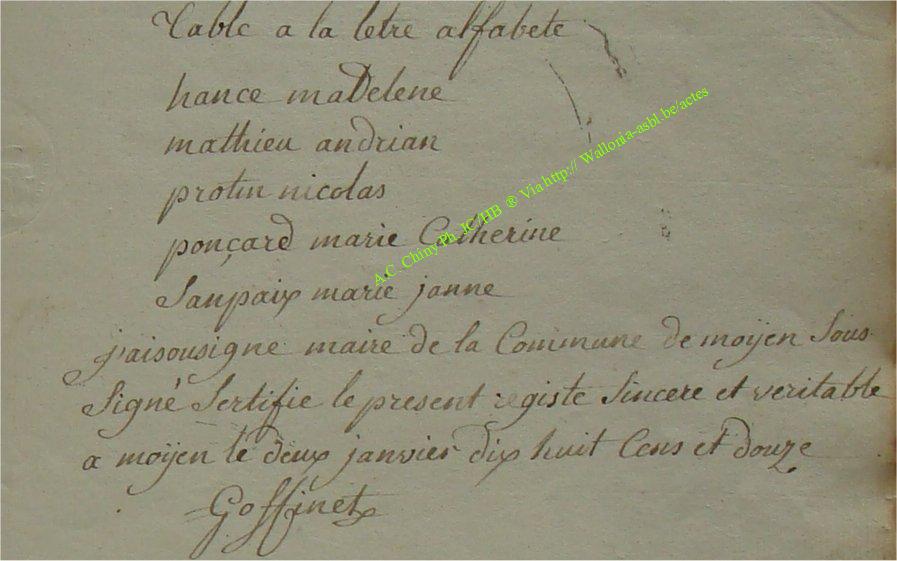 Table a la letre alfabete
hance madelene
mathieu andrian
protin nicolas
ponçard marie Catherine
Sanpaix marie janne
j'aisousigne maire de la Commune de moÿen Sous
Signé Sertifie le present registe Sincere et veritable
a moÿen le deux janvier dix huit Cens et douze
Goffinet
A.C. Chiny Ph. JC/HB ® Via http:// Wallonia-asbl.be/actes